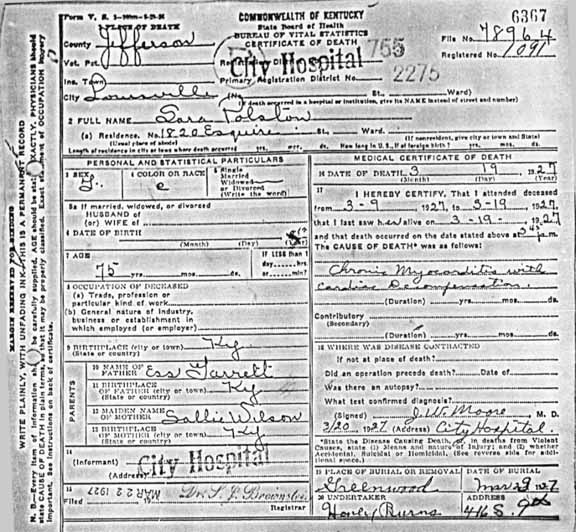 Form V. S.
COMMONWEALTH OF KENTUCKY
6367
PLACE OF DEATH
State Board of Health
BUREAU OF VITAL STATISTICS
CERTIFICATE OF DEATH
County Jefferson
File No. 78964
Vot. Pct.
Registration District No. 755
Registered No. 1091
City Hospital
Ins. Town
Primary Registration District No. 2275
City Louisville (No. St., Ward)
(If death occurred in a hospital or institution, give its NAME instead of street and number)
2 FULL NAME Sara Tolston
(a) Residence. No. 1820 Esquire St., Ward.
(Usual place of abode) (If nonresident, give city or town and State)
Length of residence in city or town where death occurred yrs. mos. ds. How long in U. S., if of foreign birth? yrs. mos. ds.
PERSONAL AND STATISTICAL PARTICULARS
3 SEX
4 COLOR OR RACE
5 Single
Married
Widowed
or Divorced
(Write the word)
5a If married, widowed, or divorced
HUSBAND of
(or) WIFE of
6 DATE OF BIRTH
(Month) (Day) (Year)
7 AGE
IF LESS than 1
day, hrs.
or min.
75 yrs. mos. ds.
8 OCCUPATION OF DECEASED
(a) Trade, profession or
particular kind of work
(b) General nature of industry,
business or establishment in
which employed (or employer)
9 BIRTHPLACE (city or town) Ky
(State or country)
PARENTS
10 NAME OF
FATHER Ess Garrett
11 BIRTHPLACE
OF FATHER (city or town) Ky
(State or country)
12 MAIDEN NAME
OF MOTHER Sallie Wilson
13 BIRTHPLACE
OF MOTHER (city or town) Ky
(State or country)
14
(Informant) City Hospital
(Address)
15
Filed MAR 22 1927
Registrar
MEDICAL CERTIFICATE OF DEATH
16 DATE OF DEATH 3 19 1927
(Month) (Day) (Year)
17
I HEREBY CERTIFY, That I attended deceased
from 3-9, 1927, to 3-19-, 1927,
that I last saw her alive on 3-19-, 1927
and that death occurred on the date stated above at p.m.
The CAUSE OF DEATH* was as follows:
Chronic Myocarditis with
Cardiac Decompensation.
(Duration) yrs. mos. ds.
Contributory
(Secondary)
(Duration) yrs. mos. ds.
18 WHERE WAS DISEASE CONTRACTED
If not at place of death?
Did an operation precede death? Date of
Was there an autopsy?
What test confirmed diagnosis?
(Signed) J. W. Moore M. D.
3/20 1927 (Address) City Hospital.
*State the Disease Causing Death, or, in deaths from Violent
Causes, state (1) Means and nature of Injury; and (2) whether
Accidental, Suicidal or Homicidal. (See reverse side for additional space.)
19 PLACE OF BURIAL OR REMOVAL DATE OF BURIAL
Greenwood
20 UNDERTAKER ADDRESS
Burns 416 S. 9th
MARGIN RESERVED FOR BINDING
WRITE PLAINLY, WITH UNFADING INK—THIS IS A PERMANENT RECORD
N. B.—Every item of information should be carefully supplied. AGE should be stated EXACTLY. PHYSICIANS should
state CAUSE OF DEATH in plain terms, so that it may be properly classified. Exact statement of OCCUPATION is very
important. See instructions on back of certificate.